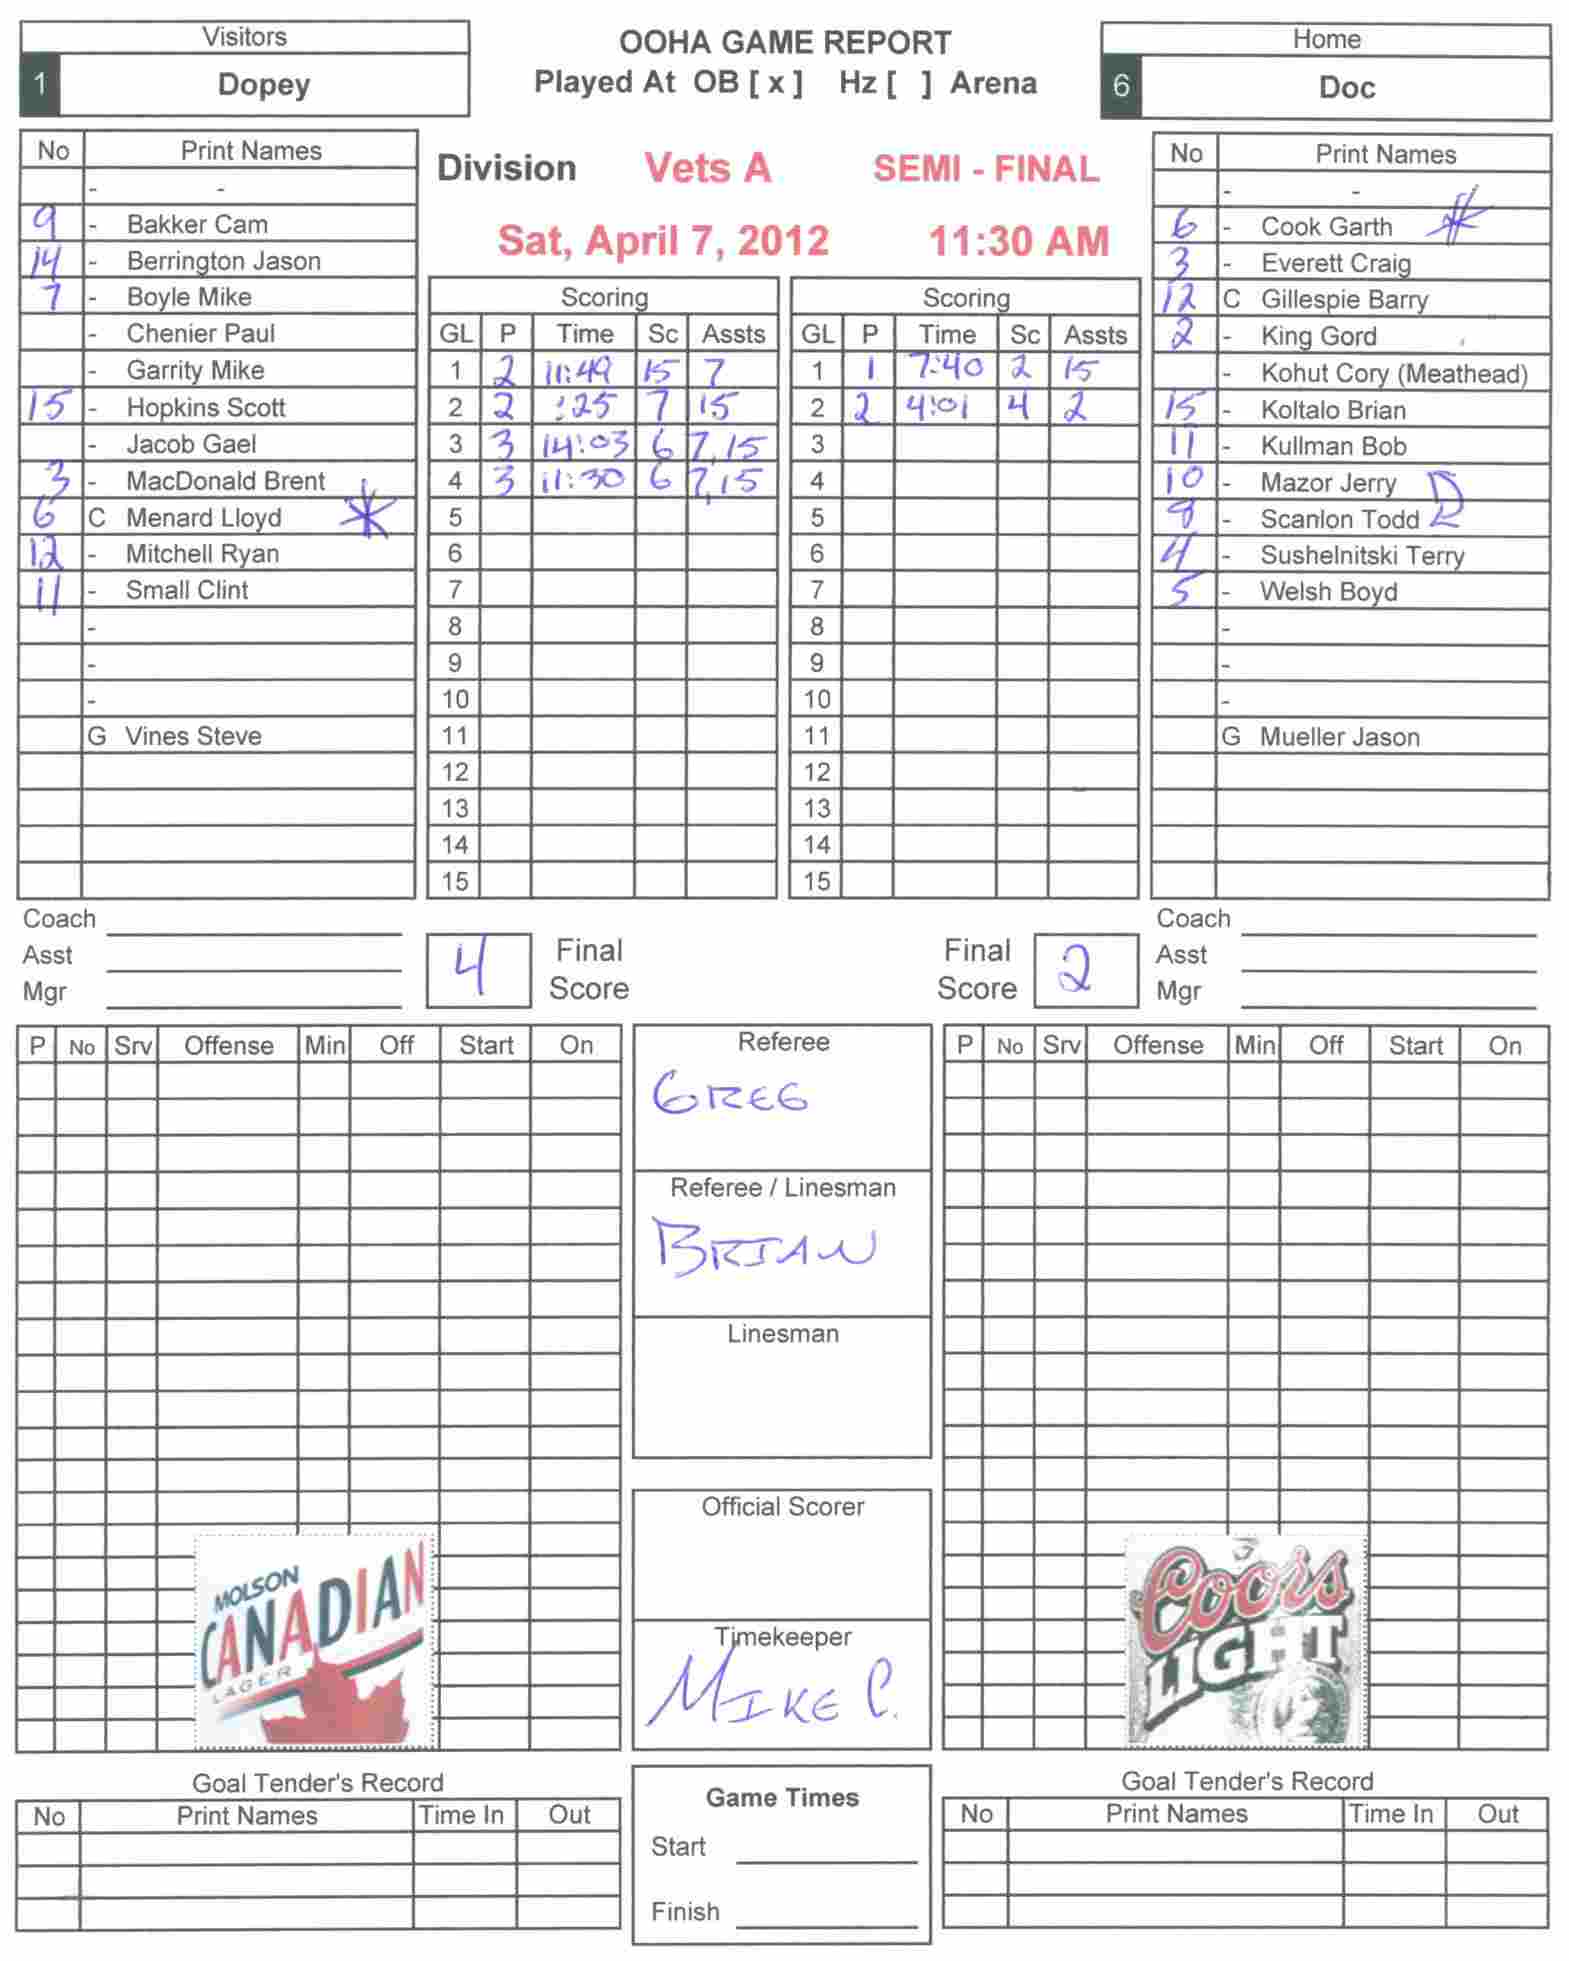 Visitors
1 Dopey
OOHA GAME REPORT
Played At OB [ x ] Hz [ ] Arena
Home
6 Doc
No Print Names
- -
9 - Bakker Cam
14 - Berrington Jason
7 - Boyle Mike
- Chenier Paul
- Garrity Mike
15 - Hopkins Scott
- Jacob Gael
3 - MacDonald Brent
6 C Menard Lloyd *
12 - Mitchell Ryan
11 - Small Clint
-
-
-
G Vines Steve
Division Vets A SEMI - FINAL
Sat, April 7, 2012 11:30 AM
Scoring
GL P Time Sc Assts
1 2 11:49 15 7
2 2 :25 7 15
3 3 14:03 6 7,15
4 3 11:30 6 7,15
5
6
7
8
9
10
11
12
13
14
15
Scoring
GL P Time Sc Assts
1 1 7:40 2 15
2 2 4:01 4 2
3
4
5
6
7
8
9
10
11
12
13
14
15
No Print Names
- -
6 - Cook Garth *
3 - Everett Craig
12 C Gillespie Barry
2 - King Gord
- Kohut Cory (Meathead)
15 - Koltalo Brian
11 - Kullman Bob
10 - Mazor Jerry
- Scanlon Todd
4 - Sushelnitski Terry
5 - Welsh Boyd
-
-
-
G Mueller Jason
Coach
Asst
Mgr
4 Final Score
Final Score 2
Coach
Asst
Mgr
P No Srv Offense Min Off Start On
Referee
GREG
Referee / Linesman
BRIAN
Linesman
Official Scorer
Timekeeper
MIKE C.
P No Srv Offense Min Off Start On
MOLSON
CANADIAN
LAGER
Coors
LIGHT
Goal Tender's Record
No Print Names Time In Out
Game Times
Start
Finish
Goal Tender's Record
No Print Names Time In Out